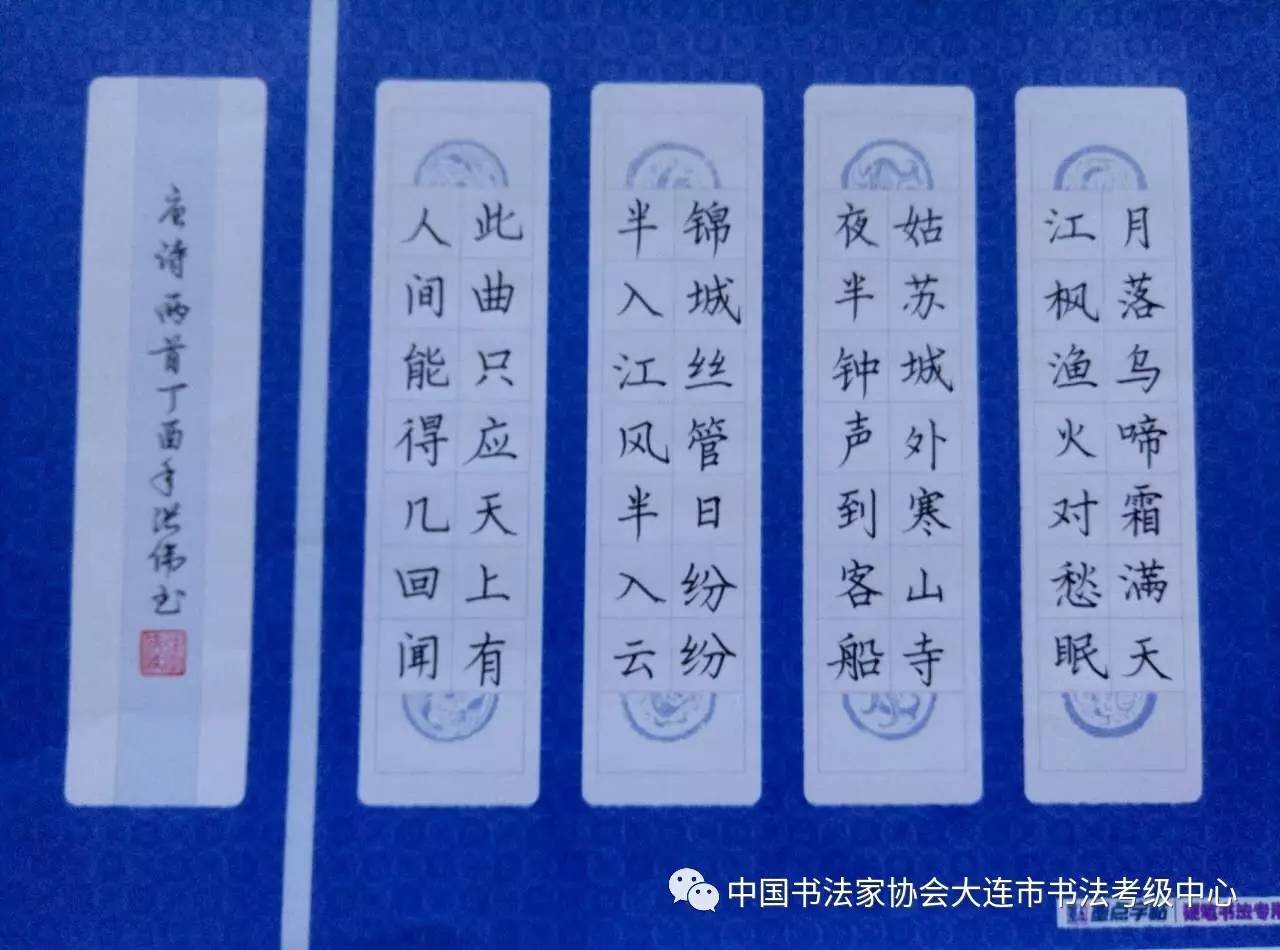 月落乌啼霜满天
江枫渔火对愁眠
姑苏城外寒山寺
夜半钟声到客船
锦城丝管日纷纷
半入江风半入云
此曲只应天上有
人间能得几回闻
唐诗两首丁酉年洪伟书
中国书法家协会大连市书法考级中心
硬笔书法专用